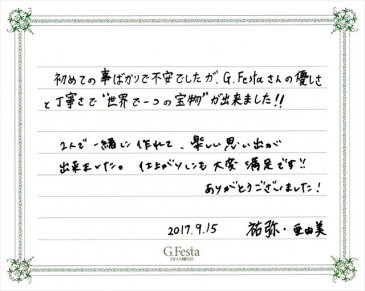 初めての事ばかりで不安でしたが、G.Festaさんの優しさ
と丁寧さで“世界で一つの宝物”が出来ました!!
2人で一緒に作れて、楽しい思い出が
出来ました。仕上がりにも大変満足です!!
ありがとうございました!
2017.9.15 祐弥・亜由美
G.Festa
DIAMOND